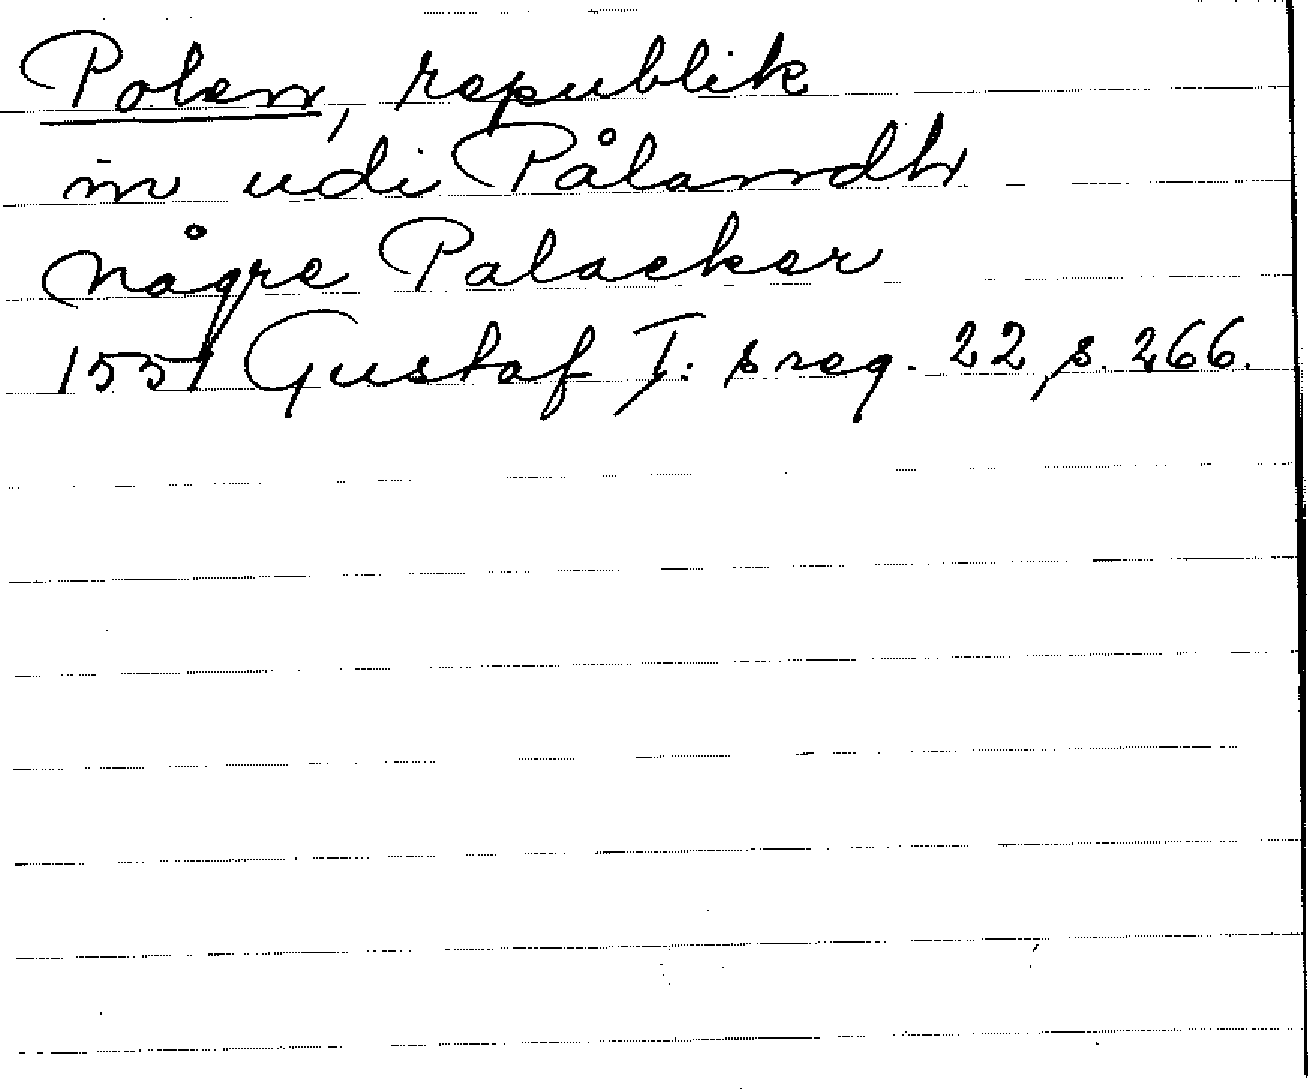 Polen, republik
in udi Pålandh
någre Palacker
1551 Gustaf I:s reg. 22, s. 266.